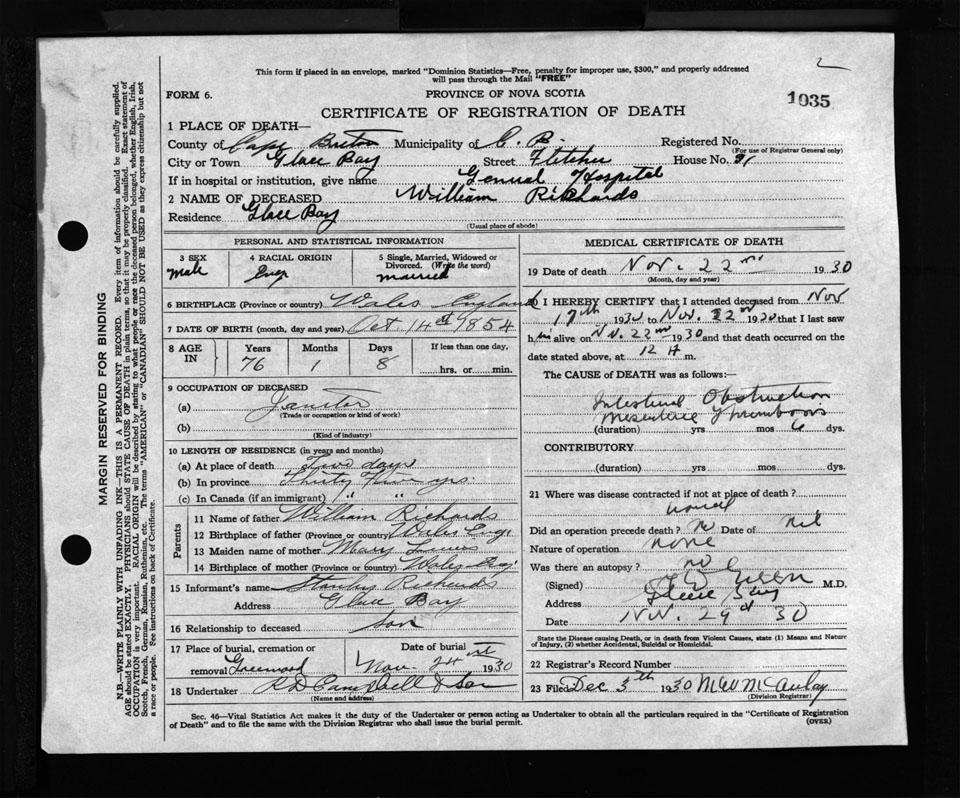 This form if placed in an envelope, marked "Dominion Statistics—Free, penalty for improper use, $300," and properly addressed
will pass through the Mail "FREE"
2
FORM 6.
PROVINCE OF NOVA SCOTIA
1035
CERTIFICATE OF REGISTRATION OF DEATH
1 PLACE OF DEATH—
County of Cape Breton Municipality of C. B. Registered No.
(For use of Registrar General only)
City or Town Glace Bay Street Fletcher House No.
If in hospital or institution, give name General Hospital
2 NAME OF DECEASED William Richards
Residence Glace Bay
(Usual place of abode)
PERSONAL AND STATISTICAL INFORMATION
3 SEX Male
4 RACIAL ORIGIN Eng
5 Single, Married, Widowed or Divorced. (Write the word) married
6 BIRTHPLACE (Province or country) Wales England
7 DATE OF BIRTH (month, day and year) Oct 14th 1854
8 AGE IN
Years Months Days If less than one day,
76 1 8 hrs. or min.
9 OCCUPATION OF DECEASED
(a) Janitor
(Trade or occupation or kind of work)
(b)
(Kind of industry)
10 LENGTH OF RESIDENCE (in years and months)
(a) At place of death Five days
(b) In province Thirty Five yrs.
(c) In Canada (if an immigrant) " "
Parents
11 Name of father William Richards
12 Birthplace of father (Province or country) Wales Eng.
13 Maiden name of mother Mary
14 Birthplace of mother (Province or country) Wales Eng.
15 Informant's name Stanley Richards
Address Glace Bay
16 Relationship to deceased Son
17 Place of burial, cremation or removal Greenwood
Date of burial Nov. 24 st 1930
18 Undertaker R D Campbell & Son
(Name and address)
MEDICAL CERTIFICATE OF DEATH
19 Date of death Nov. 22nd 1930
(Month, day and year)
20 I HEREBY CERTIFY that I attended deceased from Nov
17th 1930 to Nov. 22nd 1930 that I last saw
him alive on Nov. 22nd 1930 and that death occurred on the
date stated above, at 12 A m.
The CAUSE of DEATH was as follows:—
Intestinal Obstruction
Mesenteric Thrombosis
(duration) yrs mos 6 dys.
CONTRIBUTORY
(duration) yrs mos dys.
21 Where was disease contracted if not at place of death?
Did an operation precede death? No Date of nil
Nature of operation none
Was there an autopsy? no
(Signed) M.D.
Address Glace Bay
Date Nov. 24 30
State the Disease causing Death, or in death from Violent Causes, state (1) Means and Nature
of Injury, (2) whether Accidental, Suicidal or Homicidal.
22 Registrar's Record Number
23 Filed Dec 3th 1930 McAulay
(Division Registrar)
Sec. 46—Vital Statistics Act makes it the duty of the Undertaker or person acting as Undertaker to obtain all the particulars required in the "Certificate of Registration
of Death" and to file the same with the Division Registrar who shall issue the burial permit.
(OVER)
MARGIN RESERVED FOR BINDING
N.B.—WRITE PLAINLY WITH UNFADING INK—THIS IS A PERMANENT RECORD. Every item of information should be carefully supplied.
AGE should be stated EXACTLY. PHYSICIANS should STATE CAUSE OF DEATH in plain terms, so that it may be properly classified. Exact statement of
OCCUPATION is very important. RACIAL ORIGIN will be described by stating to what people or race the deceased person belonged, whether English, Irish,
Scotch, French, German, Russian, Ruthenian, etc. The terms "AMERICAN" or "CANADIAN" SHOULD NOT BE USED as they express citizenship but not
a race or people. See instructions on back of Certificate.